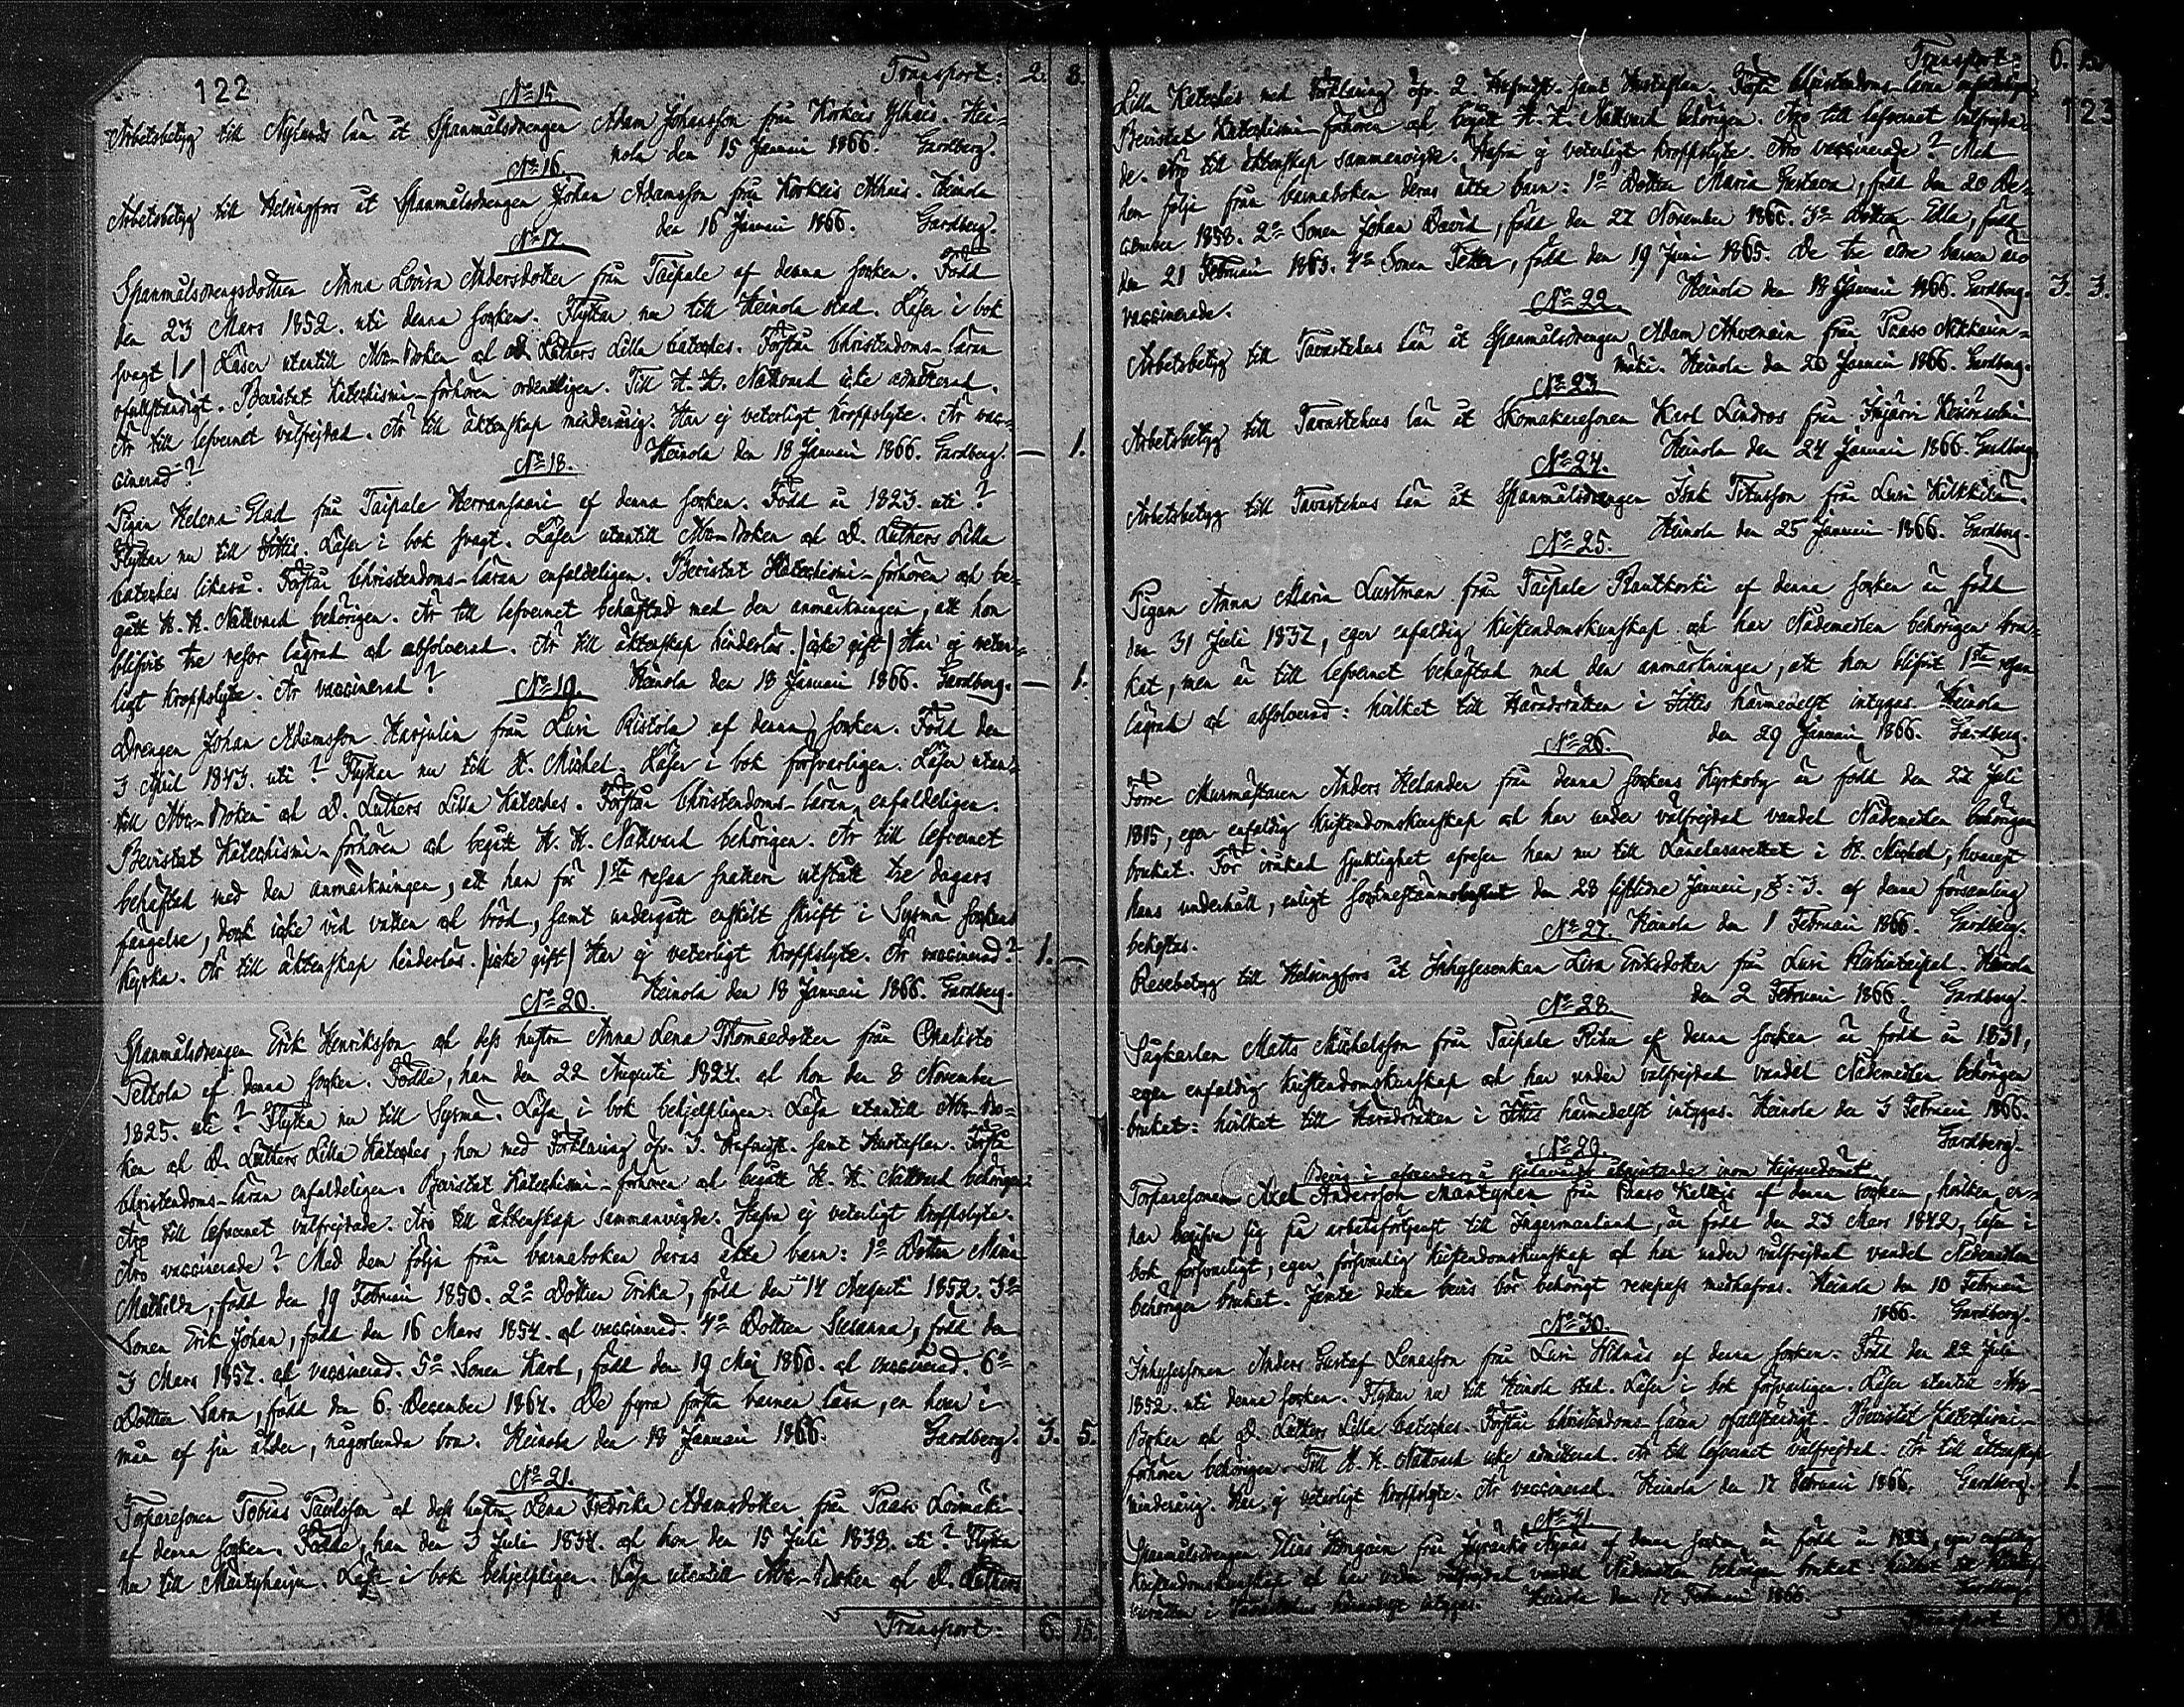 122
Transport: 2. 8.
No 15.
Arbetsbetyg till Nylands län åt Spanmålsdrengen Adam Johansson från Korkeis Yhäis. Hei-
nola den 15 Januari 1866. Gardberg.
No 16.
Arbetsbetyg till Helsingfors åt Spanmålsdrengen Johan Adamsson från Korkeis Alhais. Heinola
den 16 Januari 1866. Gardberg.
No 17.
Spanmålsdrengsdottren Anna Lovisa Andersdotter från Taipale af denna socken. Född
den 23 Mars 1852. uti denna socken. Flyttar nu till Heinola stad. Läser i bok
svagt. Läser utantill Abc-Boken och D. Luthers Lilla cateches. Förstår Christendoms-läran
ofullständigt. Bevistat Katechismi-förhören ordentligen. Till H. H. Nattvard icke admitterad.
Är till lefvernet välfrejdad. Är till äktenskap minderårig. Har ej veterligt kroppslyte. Är vac-
cinerad? Heinola den 18 Januari 1866. Gardberg. — 1.
No 18.
Pigan Helena Glad från Taipale Herransaari af denna socken. Född år 1823. uti?
Flyttar nu till Ittis. Läser i bok svagt. Läser utantill Abc-Boken och D. Luthers Lilla
cateches likaså. Förstår Christendoms-läran enfaldeligen. Bevistat Katechismi-förhören och be-
gått H. H. Nattvard behörigen. Är till lefvernet behäftad med den anmärkningen, att hon
blifvit tre resor lägrad och absolverad. Är till äktenskap hinderlös. (icke gift) Har ej veter-
ligt kroppslyte. Är vaccinerad? Heinola den 18 Januari 1866. Gardberg. — 1.
No 19.
Drengen Johan Adamsson Harjulin från Lusi Ristola af denna socken. Född den
3 April 1843. uti? Flyttar nu till St. Michel. Läser i bok försvarligen. Läser utan-
till Abc-Boken och D. Luthers Lilla Kateches. Förstår Christendoms-läran enfaldeligen.
Bevistat Katechismi-förhören och begått H. H. Nattvard behörigen. Är till lefvernet
behäftad med den anmärkningen, att han för 1sta resan snatteri utstått tre dagars
fängelse, dock icke vid vatten och bröd, samt undergått enskilt skrift i Sysmä sockens
kyrka. Är till äktenskap hinderlös. (icke gift) Har ej veterligt kroppslyte. Är vaccinerad? 1. —
Heinola den 18 Januari 1866. Gardberg.
No 20.
Spanmålsdrengen Erik Henriksson och dess hustru Anna Lena Thomaedotter från
Tellola af denna socken. Födde, han den 22 Augusti 1827. och hon den 8 November
1825. uti? Flytta nu till Sysmä. Läsa i bok behjelpligen. Läsa utantill Abc-Bo-
ken och D. Luthers Lilla Kateches, hon med Förklaring öfv. 3. Hufvudst. samt Hustaflan. Förstå
Christendoms-läran enfaldeligen. Bevistat Katechismi-förhören och begått H. H. Nattvard behörigen.
Äro till lefvernet välfrejdade. Äro till äktenskap sammanvigde. Hafva ej veterligt kroppslyte.
Äro vaccinerade? Med dem följa från barnaboken deras äkta barn: 1o Dottren Maria
Mathilda, född den 19 Februari 1850. 2o Dottren Erika, född den 14 Augusti 1852. 3o
Sonen Erik Johan, född den 16 Mars 1854. och vaccinerad. 4o Dottren Susanna, född den
3 Mars 1857. och vaccinerad. 5o Sonen Karl, född den 19 Maj 1860. och vaccinerad. 6o
Dottren Sara, född den 6. December 1864. De fyra första barnen läsa, en hvar i
mån af sin ålder, någorlunda bra. Heinola den 18 Januari 1866. Gardberg. 3. 5.
No 21.
Torparesonen Tobias Paulsson och dess hustru Lena Fredrika Adamsdotter från Paaso Loimäki
af denna socken. Födde, han den 3 Juli 1834. och hon den 15 Juli 1838. uti? Flytta
nu till Mäntyharju. Läsa i bok behjelpligen. Läsa utantill Abc-Boken och D. Luthers
Transport: 6. 15.
Transport: 6. 15.
123
Lilla Kateches med Förklaring öfv. 2. Hufvudst. samt Hustaflan. Förstå Christendoms-läran enfaldeligen.
Bevistat Katechismi-förhören och begått H. H. Nattvard behörigen. Äro till lefvernet välfrejda-
de. Äro till äktenskap sammanvigde. Hafva ej veterligt kroppslyte. Äro vaccinerade? Med
dem följa från barnaboken deras äkta barn: 1o Dottren Maria Gustava, född den 20 De-
cember 1858. 2o Sonen Johan David, född den 27 November 1860. 3o Dottren Edla, född
den 21 Februari 1863. 4o Sonen Petter, född den 19 Juni 1865. De tre äldre barnen äro
vaccinerade. Heinola den 18 Januari 1866. Gardberg. 3. 3.
No 22.
Arbetsbetyg till Tavastehus län åt Spanmålsdrengen Adam Ahvenain från Paaso Nikkarin-
mäki. Heinola den 20 Januari 1866. Gardberg.
No 23.
Arbetsbetyg till Tavastehus län åt Skomakaresonen Karl Lindros från
Heinola den 24 Januari 1866. Gardberg.
No 24.
Arbetsbetyg till Tavastehus län åt Spanmålsdrengen Isak Titusson från Lusi Kilkkilä.
Heinola den 25 Januari 1866. Gardberg.
No 25.
Pigan Anna Maria Lustman från Taipale Rautkorti af denna socken är född
den 31 Juli 1837, eger enfaldig kristendomskunskap och har Nådemedlen behörigen bru-
kat, men är till lefvernet behäftad med den anmärkningen, att hon blifvit 1sta resan
lägrad och absolverad: hvilket till Häradsrätten i Ittis härmedelst intygas. Heinola
den 29 Januari 1866. Gardberg.
No 26.
Förre Murmästaren Anders Helander från denna sockens Kyrkoby är född den 22 Juli
1815, eger enfaldig kristendomskunskap och har under välfrejdad vandel Nådemedlen behörigen
brukat. För iråkad sjuklighet afreser han nu till Länelasarettet i St. Michel, hvarest
hans underhåll, enligt sockenstämmobeslut den 28 sistlidne Januari, §: 3. af denna församling
bekostas. Heinola den 1 Februari 1866. Gardberg.
No 27.
Resebetyg till Helsingfors åt Inhysesenkan Lisa Eriksdotter från Lusi. Heinola
den 2 Februari 1866. Gardberg.
No 28.
Sågkarlen Matts Michelsson från Taipale Rihu af denna socken är född år 1831,
eger enfaldig kristendomskunskap och har under välfrejdad vandel Nådemedlen behörigen
brukat: hvilket till Häradsrätten i Ittis härmedelst intygas. Heinola den 3 Februari 1866.
Gardberg.
No 29.
Bevis i afseende å inom kejsaredömet
Torparesonen Axel Andersson Mäntynen från Paaso Kelkis af denna socken, hvilken er-
nar begifva sig på arbetsförtjenst till Ingermanland, är född den 23 Mars 1842, läser i
bok försvarligt, eger försvarlig kristendomskunskap och har under välfrejdad vandel Nådemedlen
behörigen brukat. Jämte detta bevis bör behörigt resepass medhafvas. Heinola den 10 Februari
1866. Gardberg.
No 30.
Inhysessonen Anders Gustaf Lenasson från Lusi af denna socken. Född den 22 Juli
1852. uti denna socken. Flyttar nu till Heinola stad. Läser i bok försvarligen. Läser utantill Abc-
Boken och D. Luthers Lilla cateches. Förstår Christendoms-läran ofullständigt. Bevistat Katechismi-
förhören behörigen. Till H. H. Nattvard icke admitterad. Är till lefvernet välfrejdad. Är till äktenskap
minderårig. Har ej veterligt kroppslyte. Är vaccinerad. Heinola den 17 Februari 1866. Gardberg. 1.
No 31.
Spanmålsdrengen Elias från Jyränkö af denna socken, är född år, eger enfaldig
kristendomskunskap och har under välfrejdad vandel Nådemedlen behörigen brukat: hvilket till
i Tavastehus intygas. Heinola den 17 Februari 1866. Gardberg.
Transport: